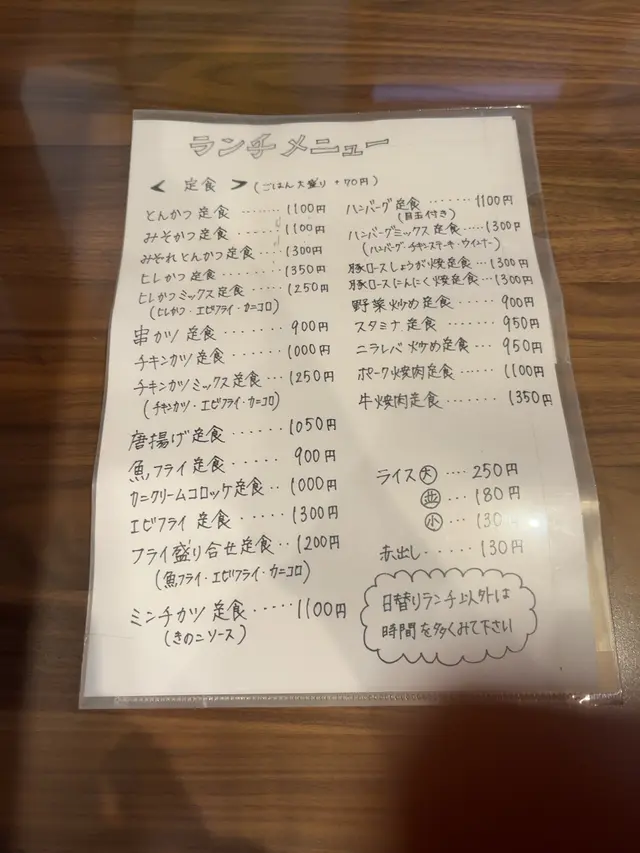 ランチメニュー
< 定食 > (ごはん大盛り +70円)
とんかつ定食 ‥‥‥ 1100円
みそかつ定食 ‥‥‥ 1100円
みぞれとんかつ定食 ‥‥ 1300円
ヒレかつ定食 ‥‥‥ 1350円
ヒレかつミックス定食 ‥‥ 1250円
(ヒレかつ・エビフライ・カニコロ)
串カツ定食 ‥‥‥ 900円
チキンカツ定食 ‥‥‥ 1000円
チキンカツミックス定食 ‥ 1250円
(チキンカツ・エビフライ・カニコロ)
唐揚げ定食 ‥‥‥ 1050円
魚フライ定食 ‥‥‥ 900円
カニクリームコロッケ定食 ‥ 1000円
エビフライ定食 ‥‥‥ 1300円
フライ盛り合せ定食 ‥ 1200円
(魚フライ・エビフライ・カニコロ)
ミンチカツ定食 ‥‥‥ 1100円
(きのこソース)
ハンバーグ定食 ‥‥‥ 1100円
(目玉付き)
ハンバーグミックス定食 ‥‥ 1300円
(ハンバーグ・チキンステーキ・ウインナー)
豚ロースしょうが焼定食 ‥ 1300円
豚ロースにんにく焼定食 ‥ 1300円
野菜炒め定食 ‥‥ 900円
スタミナ定食 ‥‥‥ 950円
ニラレバ炒め定食 ‥‥ 950円
ポーク焼肉定食 ‥‥‥ 1100円
牛焼肉定食 ‥‥‥ 1350円
ライス 大 ‥‥ 250円
並 ‥‥ 180円
小 ‥‥ 130
赤出し ‥‥‥ 130円
日替りランチ以外は
時間を多くみて下さい